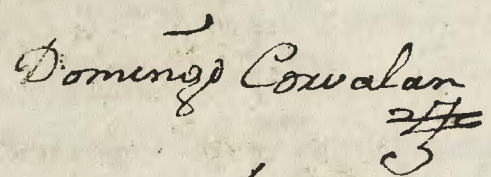 Domingo Corvalan